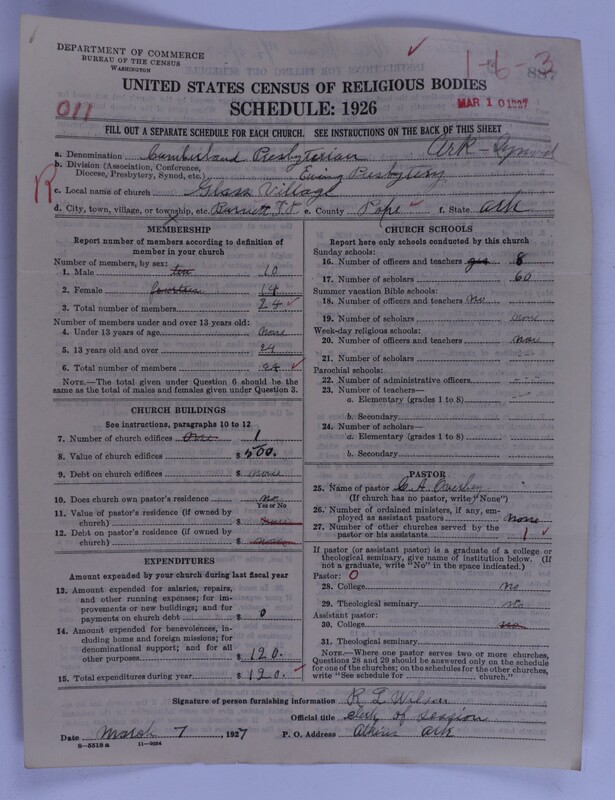 DEPARTMENT OF COMMERCE
BUREAU OF THE CENSUS
WASHINGTON
1-6-3
UNITED STATES CENSUS OF RELIGIOUS BODIES
SCHEDULE: 1926
011
MAR 10 1927
FILL OUT A SEPARATE SCHEDULE FOR EACH CHURCH. SEE INSTRUCTIONS ON THE BACK OF THIS SHEET
a. Denomination Cumberland Presbyterian Ark-Synod
b. Division (Association, Conference, Diocese, Presbytery, Synod, etc.) Ewing Presbytery
R
c. Local name of church Glass Village
d. City, town, village, or township, etc. Burnett T.P. e. County Pope f. State Ark
MEMBERSHIP
Report number of members according to definition of member in your church
Number of members, by sex:
1. Male ten 10
2. Female fourteen 14
3. Total number of members 24
Number of members under and over 13 years old:
4. Under 13 years of age none
5. 13 years old and over 24
6. Total number of members 24
NOTE.—The total given under Question 6 should be the same as the total of males and females given under Question 3.
CHURCH BUILDINGS
See instructions, paragraphs 10 to 12
7. Number of church edifices One 1
8. Value of church edifices $ 500.
9. Debt on church edifices $ none
10. Does church own pastor's residence no
Yes or No
11. Value of pastor's residence (if owned by church) $
12. Debt on pastor's residence (if owned by church) $
EXPENDITURES
Amount expended by your church during last fiscal year
13. Amount expended for salaries, repairs, and other running expenses; for improvements or new buildings; and for payments on church debt $ 0
14. Amount expended for benevolences, including home and foreign missions; for denominational support; and for all other purposes $ 120.
15. Total expenditures during year $ 120.
CHURCH SCHOOLS
Report here only schools conducted by this church
Sunday schools:
16. Number of officers and teachers 8
17. Number of scholars 60
Summer vacation Bible schools:
18. Number of officers and teachers no
19. Number of scholars none
Week-day religious schools:
20. Number of officers and teachers none
21. Number of scholars
Parochial schools:
22. Number of administrative officers
23. Number of teachers—
a. Elementary (grades 1 to 8)
b. Secondary
24. Number of scholars—
a. Elementary (grades 1 to 8)
b. Secondary
PASTOR
25. Name of pastor C. A.
(If church has no pastor, write "None")
26. Number of ordained ministers, if any, employed as assistant pastors none
27. Number of other churches served by the pastor or his assistants 1
If pastor (or assistant pastor) is a graduate of a college or theological seminary, give name of institution below. (If not a graduate, write "No" in the space indicated.)
Pastor: 0
28. College no
29. Theological seminary no
Assistant pastor:
30. College no
31. Theological seminary
NOTE.—Where one pastor serves two or more churches, Questions 28 and 29 should be answered only on the schedule for one of the churches; on the schedules for the other churches, write "See schedule for church."
Signature of person furnishing information R L Wilson
Official title Clerk of Session
Date March 7, 1927 P. O. Address Atkins Ark
8—5518 a 11—9024